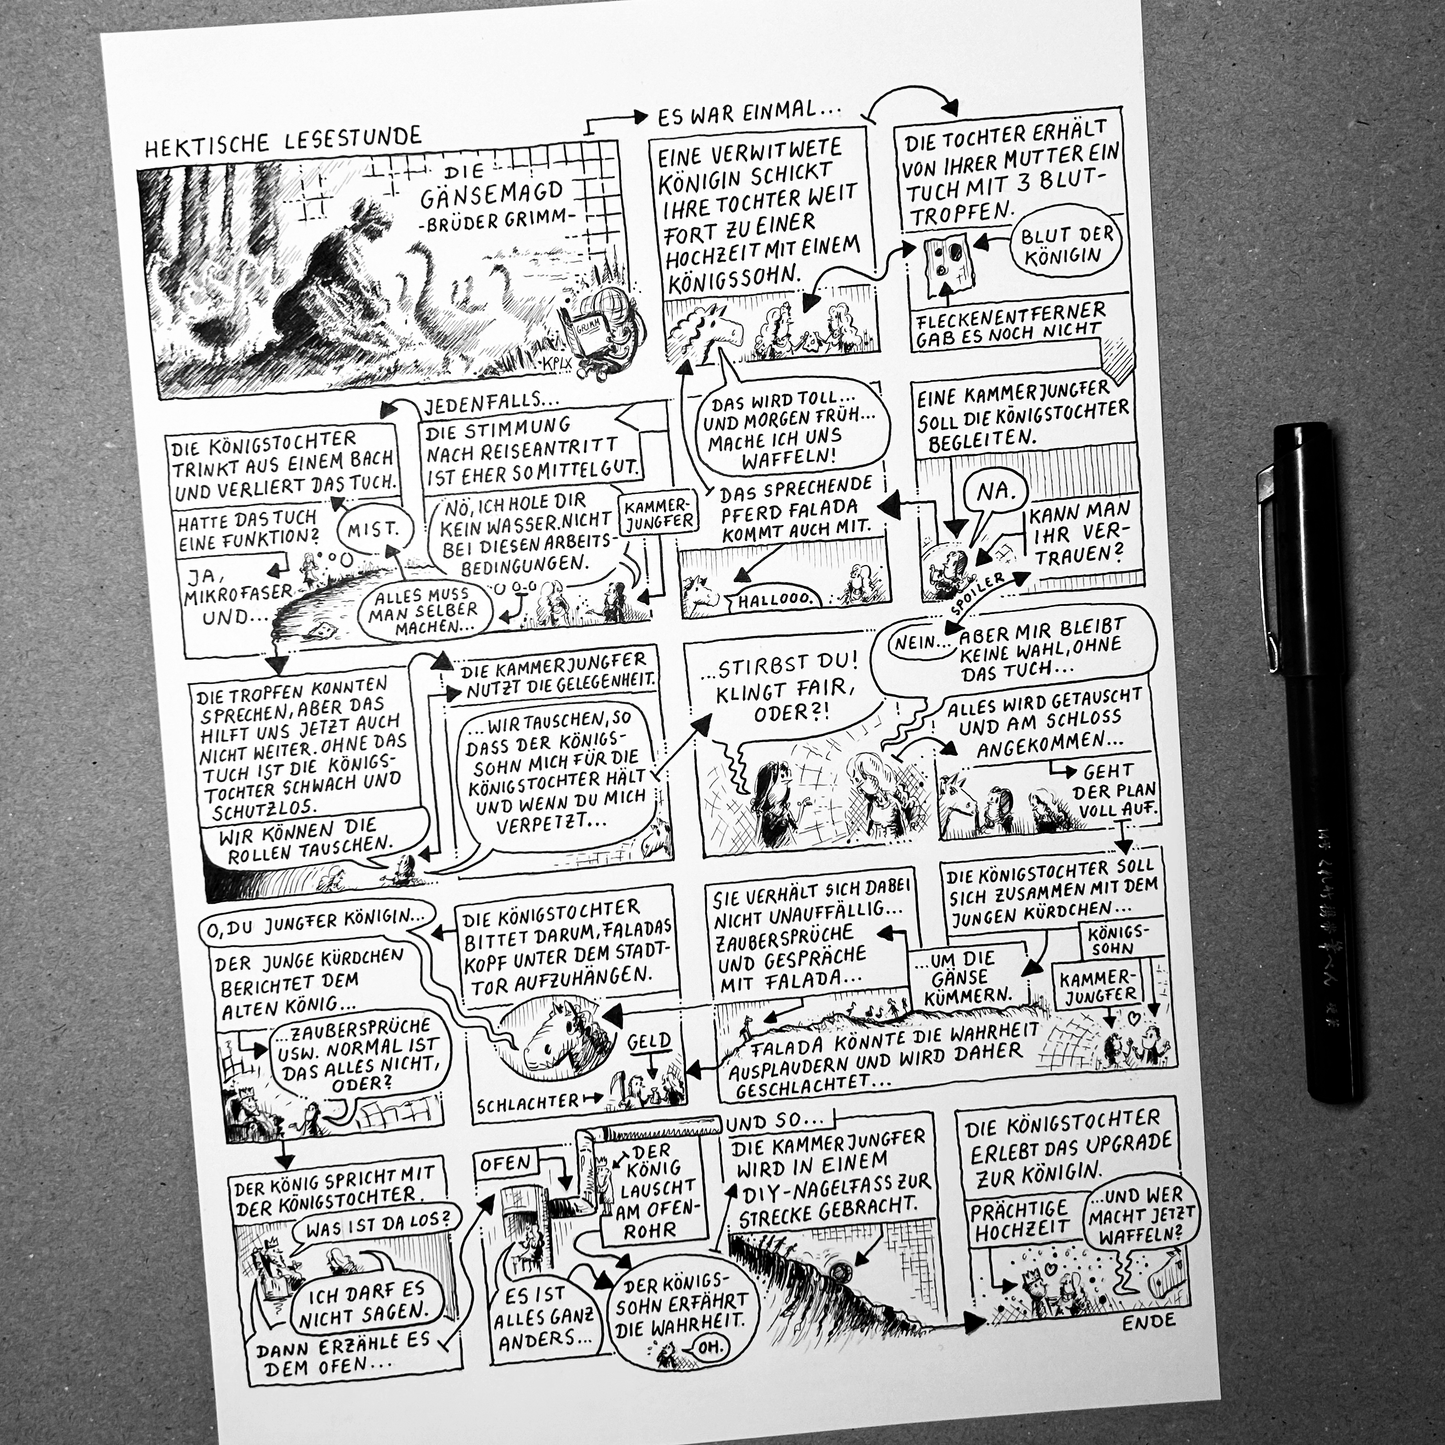 HEKTISCHE LESESTUNDE
DIE
GÄNSEMAGD
-BRÜDER GRIMM-
GRIMM
KPLX
ES WAR EINMAL...
EINE VERWITWETE
KÖNIGIN SCHICKT
IHRE TOCHTER WEIT
FORT ZU EINER
HOCHZEIT MIT EINEM
KÖNIGSSOHN.
DIE TOCHTER ERHÄLT
VON IHRER MUTTER EIN
TUCH MIT 3 BLUT-
TROPFEN.
BLUT DER
KÖNIGIN
FLECKENENTFERNER
GAB ES NOCH NICHT
EINE KAMMERJUNGFER
SOLL DIE KÖNIGSTOCHTER
BEGLEITEN.
NA.
KANN MAN
IHR VER-
TRAUEN?
SPOILER
NEIN...
DAS WIRD TOLL...
UND MORGEN FRÜH...
MACHE ICH UNS
WAFFELN!
DAS SPRECHENDE
PFERD FALADA
KOMMT AUCH MIT.
HALLOOO.
JEDENFALLS...
DIE STIMMUNG
NACH REISEANTRITT
IST EHER SO MITTELGUT.
KAMMER-
JUNGFER
NÖ, ICH HOLE DIR
KEIN WASSER. NICHT
BEI DIESEN ARBEITS-
BEDINGUNGEN.
ALLES MUSS
MAN SELBER
MACHEN...
DIE KÖNIGSTOCHTER
TRINKT AUS EINEM BACH
UND VERLIERT DAS TUCH.
MIST.
HATTE DAS TUCH
EINE FUNKTION?
JA,
MIKROFASER
UND...
DIE TROPFEN KONNTEN
SPRECHEN, ABER DAS
HILFT UNS JETZT AUCH
NICHT WEITER. OHNE DAS
TUCH IST DIE KÖNIGS-
TOCHTER SCHWACH UND
SCHUTZLOS.
WIR KÖNNEN DIE
ROLLEN TAUSCHEN.
DIE KAMMERJUNGFER
NUTZT DIE GELEGENHEIT.
...WIR TAUSCHEN, SO
DASS DER KÖNIGS-
SOHN MICH FÜR DIE
KÖNIGSTOCHTER HÄLT
UND WENN DU MICH
VERPETZT...
...STIRBST DU!
KLINGT FAIR,
ODER?!
ABER MIR BLEIBT
KEINE WAHL, OHNE
DAS TUCH...
ALLES WIRD GETAUSCHT
UND AM SCHLOSS
ANGEKOMMEN...
GEHT
DER PLAN
VOLL AUF.
DIE KÖNIGSTOCHTER SOLL
SICH ZUSAMMEN MIT DEM
JUNGEN KÜRDCHEN...
...UM DIE
GÄNSE
KÜMMERN.
KÖNIGS-
SOHN
KAMMER-
JUNGFER
SIE VERHÄLT SICH DABEI
NICHT UNAUFFÄLLIG...
ZAUBERSPRÜCHE
UND GESPRÄCHE
MIT FALADA...
FALADA KÖNNTE DIE WAHRHEIT
AUSPLAUDERN UND WIRD DAHER
GESCHLACHTET...
GELD
SCHLACHTER
DIE KÖNIGSTOCHTER
BITTET DARUM, FALADAS
KOPF UNTER DEM STADT-
TOR AUFZUHÄNGEN.
O, DU JUNGFER KÖNIGIN...
DER JUNGE KÜRDCHEN
BERICHTET DEM
ALTEN KÖNIG...
...ZAUBERSPRÜCHE
USW. NORMAL IST
DAS ALLES NICHT,
ODER?
DER KÖNIG SPRICHT MIT
DER KÖNIGSTOCHTER.
WAS IST DA LOS?
ICH DARF ES
NICHT SAGEN.
DANN ERZÄHLE ES
DEM OFEN...
OFEN
DER
KÖNIG
LAUSCHT
AM OFEN-
ROHR
ES IST
ALLES GANZ
ANDERS...
DER KÖNIGS-
SOHN ERFÄHRT
DIE WAHRHEIT.
OH.
UND SO...
DIE KAMMERJUNGFER
WIRD IN EINEM
DIY-NAGELFASS ZUR
STRECKE GEBRACHT.
DIE KÖNIGSTOCHTER
ERLEBT DAS UPGRADE
ZUR KÖNIGIN.
PRÄCHTIGE
HOCHZEIT
...UND WER
MACHT JETZT
WAFFELN?
ENDE